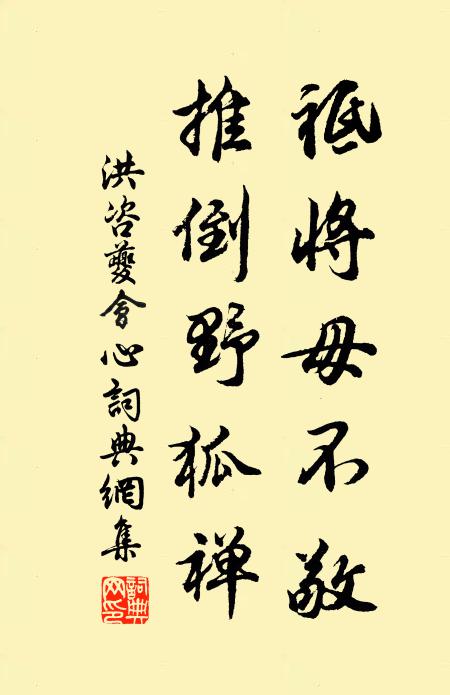 祗將毋不敬
推倒野狐禅
洪咨夔會心詞典網集
詞典网印